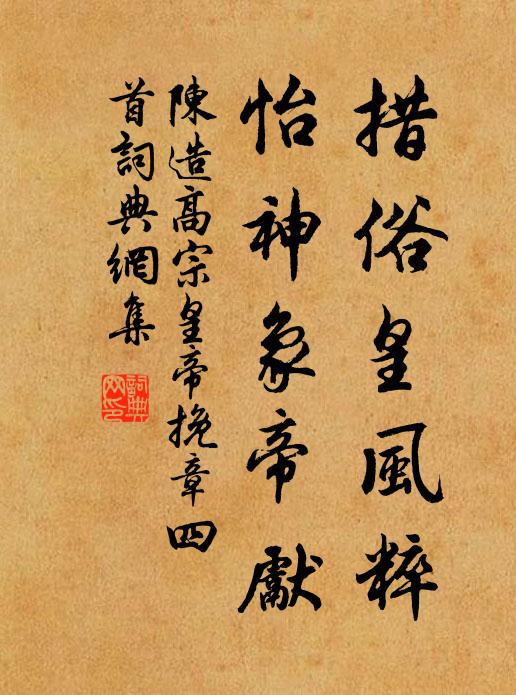 措俗皇風粹
怡神象帝獻
陳造高宗皇帝挽章四
首詞典網集
詞典
网印